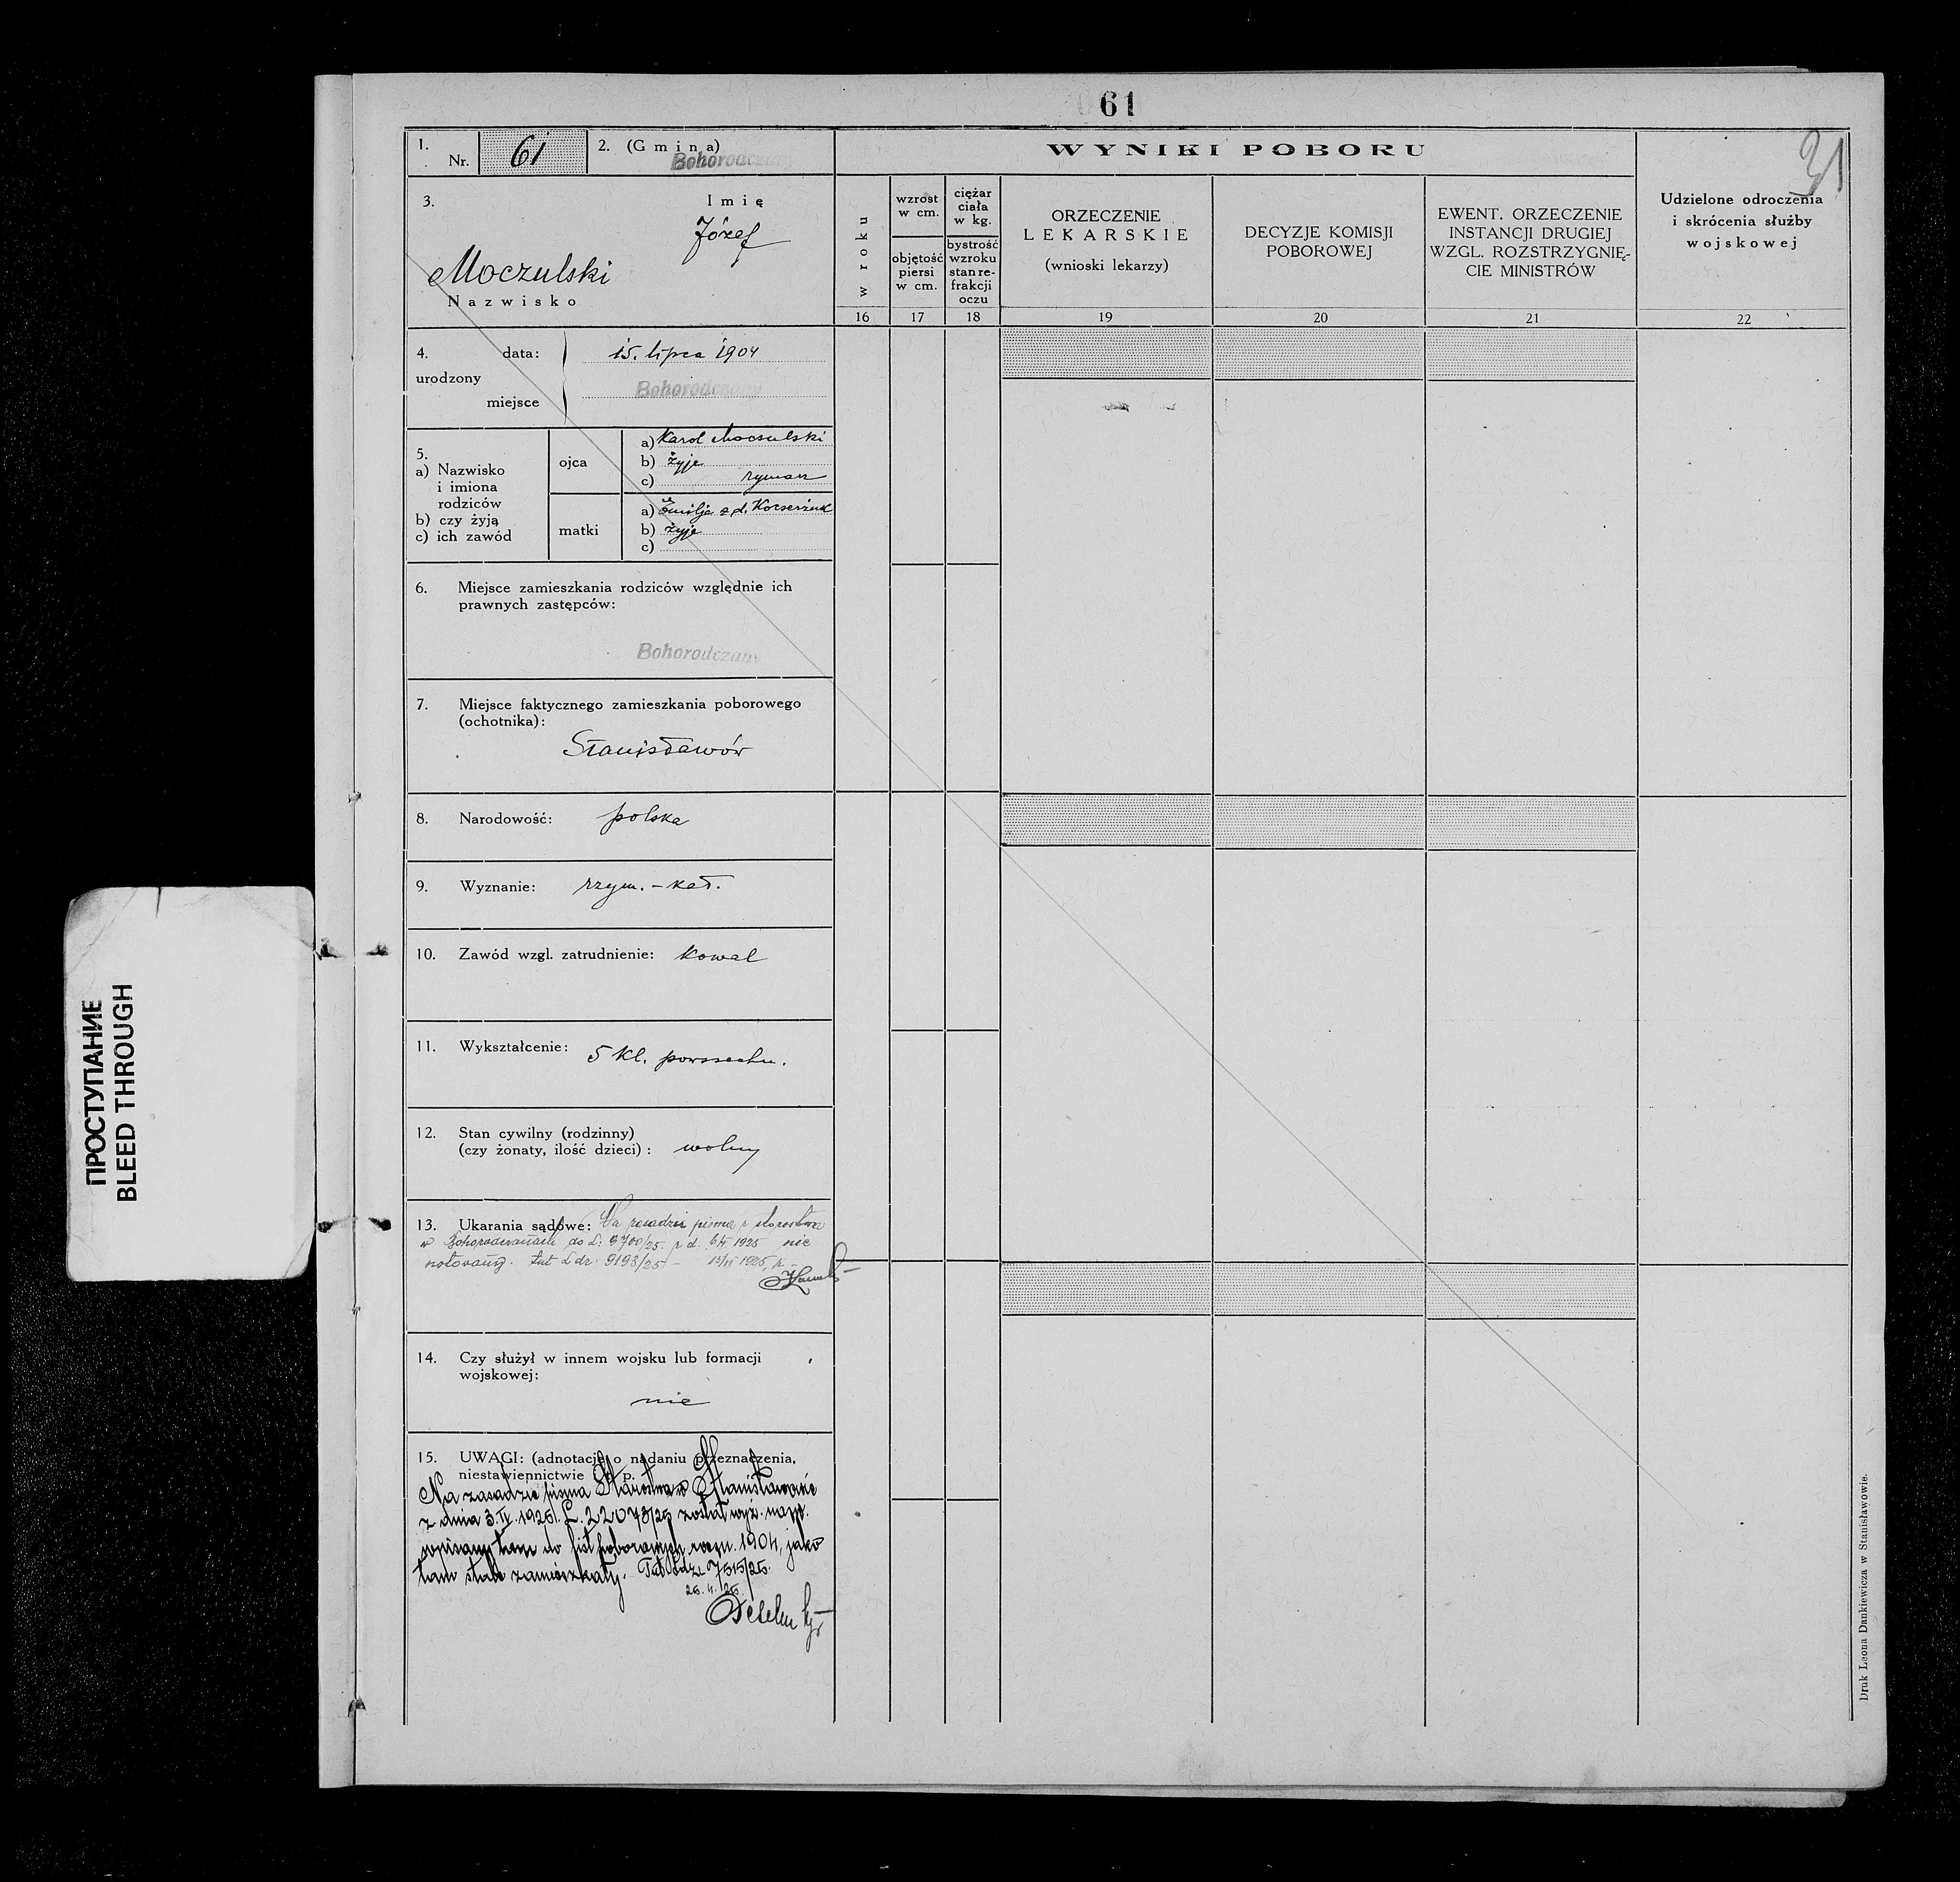 61
31
1.
Nr. 61
2. (Gmina)
Bohorodczany
WYNIKI POBORU
3.
Imię
Józef
Moczulski
Nazwisko
w roku
wzrost
w cm.
objętość
piersi
w cm.
ciężar
ciała
w kg.
bystrość
wzroku
stan re-
frakcji
oczu
ORZECZENIE
LEKARSKIE
(wnioski lekarzy)
DECYZJE KOMISJI
POBOROWEJ
EWENT. ORZECZENIE
INSTANCJI DRUGIEJ
WZGL. ROZSTRZYGNIĘ-
CIE MINISTRÓW
Udzielone odroczenia
i skrócenia służby
wojskowej
16 17 18 19 20 21 22
4.
urodzony
data: 15. lipca 1904
miejsce Bohorodczany
5.
a) Nazwisko
i imiona
rodziców
b) czy żyją
c) ich zawód
ojca
a) Karol Moczulski
b) żyje
c) rymarz
matki
a) Emilja z d.
b) żyje
c)
6. Miejsce zamieszkania rodziców względnie ich
prawnych zastępców:
Bohorodczany
7. Miejsce faktycznego zamieszkania poborowego
(ochotnika):
Stanisławów
8. Narodowość: polska
9. Wyznanie: rzym.-kat.
10. Zawód wzgl. zatrudnienie: kowal
11. Wykształcenie: 5 kl. powszechn.
12. Stan cywilny (rodzinny)
(czy żonaty, ilość dzieci): wolny
13. Ukarania sądowe: Na zasadzie pisma starostwa
w Bohorodczanach do L: 3700/25. z d. 1925 nie
notowany. tut L dz. 9193/25 1925
14. Czy służył w innem wojsku lub formacji
wojskowej:
nie
15. UWAGI: (adnotacje o nadaniu przeznaczenia,
niestawiennictwie i t. p.
Na zasadzie pisma Starostwa w Stanisławowie
z dnia 3.IV.1925. L. 22073/25 został wyż. wzp.
wpisany tam do list poborowych roczn. 1904, jako
tam stale zamieszkały. Tut. Ldz. 7515/25.
Druk Leona Dankiewicza w Stanisławowie.
ПРОСТУПАНИЕ
BLEED THROUGH